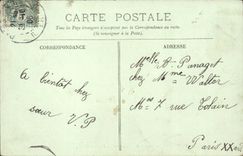 CARTE POSTALE
Tous les Pays étrangers n'acceptent pas la Correspondance au recto
(Se renseigner à la Poste)
CORRESPONDANCE
ADRESSE
a bientot chez
sœur V P
Melle B. Panaget
chez Mme Walter
7 rue Tolain
Paris XX